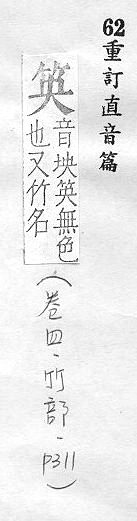 62重訂直音篇
䇦
音坱英無色
也又竹名
(卷四、竹部、P311)